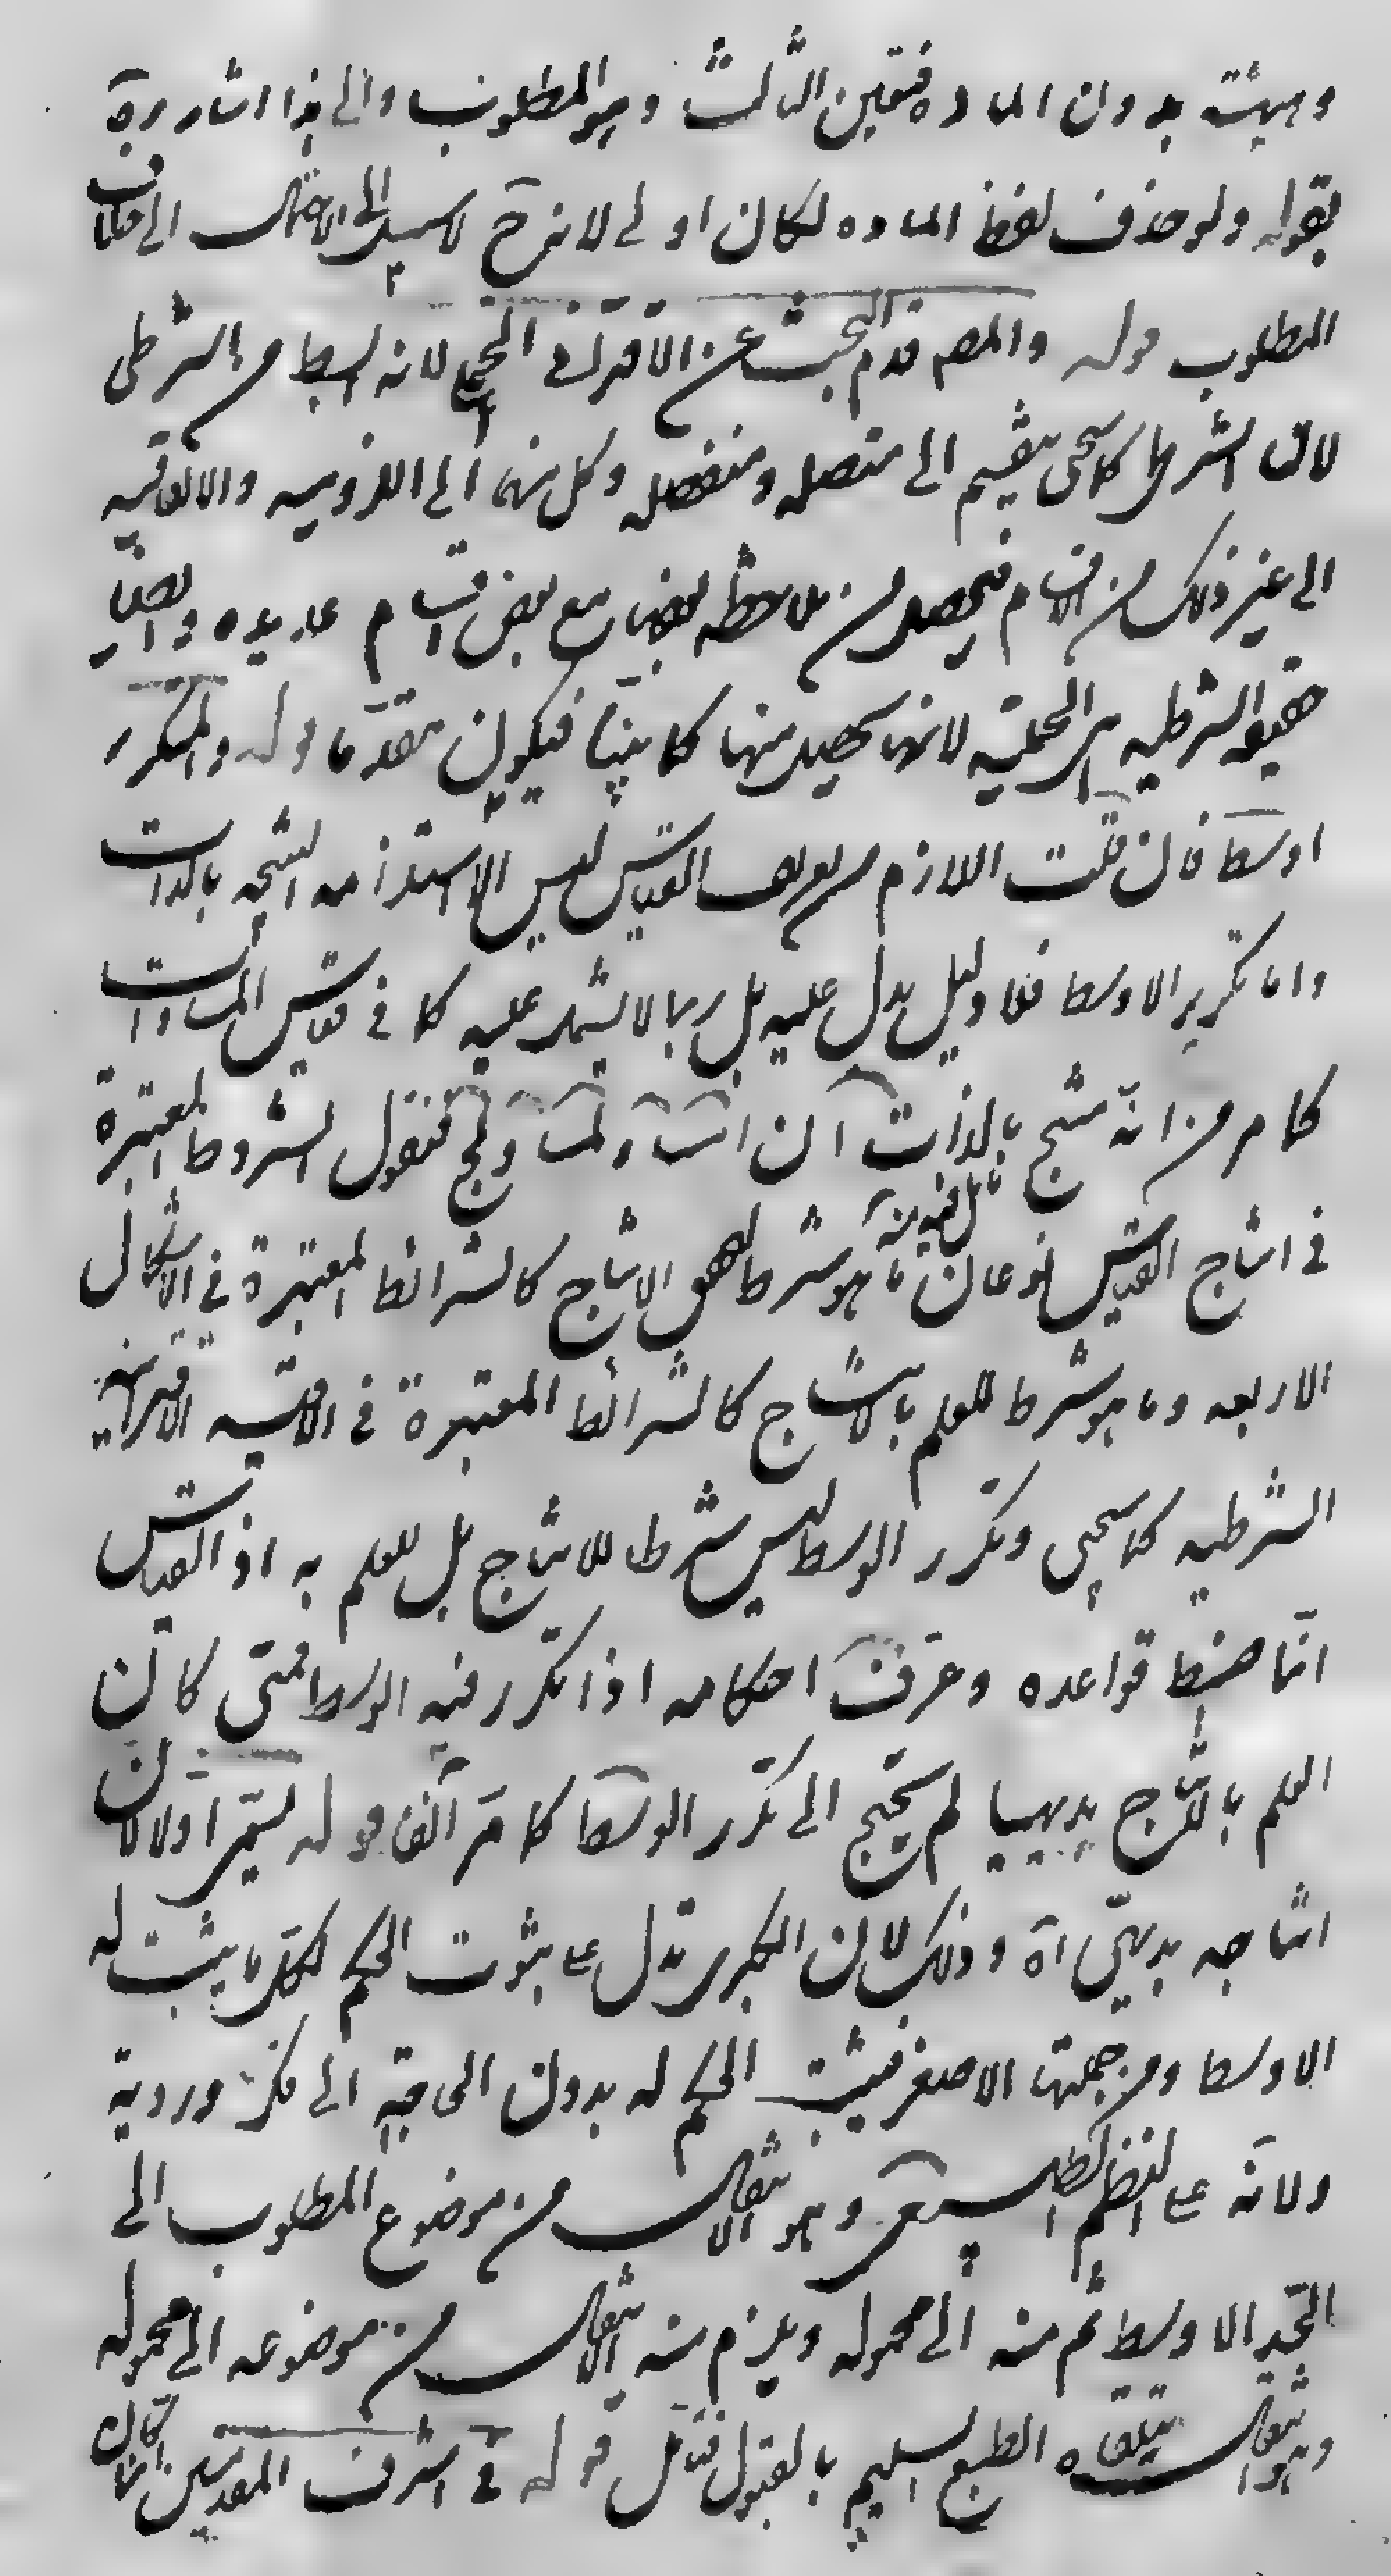 وهيئته بدون الماده فتعين الثالث وهو المطلوب والى هذا اشار ره
بقوله ولو حذف لفظ الماده لكان اولى لانه ح لا سبيل الى الاحتمال الى خلاف
المطلوب قوله والمصه قدم البحث عن الاقترانى الحملى لانه ابسط من الشرطى
لان الشرط كما سيجئ ينقسم الى متصله ومنفصله وكل منهما الى اللزوميه والاتفاقيه
الى غير ذلك من الاقسام فيحصل من ملاحظه بعضها مع بعض اقسام عديده وايضا
حقيقه الشرطيه هى الحمليه لانها تحصل منها كما بينا فيكون مقدما قوله والمكرر
اوسط فان قلت اللازم من تعريف القياس ليس الا استلزامه النتيجه بالذات
واما تكرير الاوسط فلا دليل يدل عليه بل ربما لا يشمل عليه كما فى قياس المساوات
كما مر من انه منتج بالذات آن انت ولت ولج فنقول الشروط المعتبرة
فى انتاج القياس نوعان ما هو شرط لتحقق الانتاج كالشرائط المعتبرة فى الاشكال
الاربعه وما هو شرط للعلم بالانتاج كالشرائط المعتبرة فى الاقيسه الاقترانيه
الشرطيه كما سيجى وتكرر الوسط ليس شرط للانتاج بل للعلم به اذ القياس
انما ضبط قواعده وعرف احكامه اذا تكرر فيه الوسط فمتى كان
العلم بالانتاج بديهيا لم يحتج الى تكرر الوسط كما مر آنفا قوله يسمى اولا لان
انتاجه بديهى اه وذلك لان الكبرى تدل على ثبوت الحكم لكل ما يثبت له
الاوسط ومن جملتها الاصغر فيثبت الحكم له بدون الحاجة الى فكر وروية
ولانه على النظم الطبيعى وهو الانتقال من موضوع المطلوب الى
الحد الاوسط ثم منه الى محموله ويلزم منه الانتقال من موضوعه الى محموله
وهو انتقال يتلقاه الطبع السليم بالقبول فتامل قوله فى اشرف المقدمتين انما كان